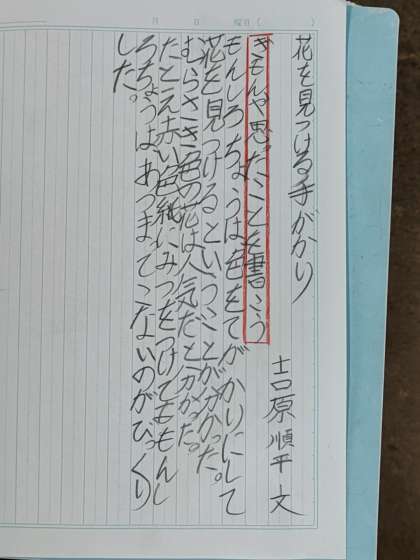 月　日　曜日（　　）
花を見つける手がかり
吉原順平 文
ぎもんや思ったことを書こう
もんしろちょうは色をてがかりにして
花を見つけるということが分かった。
むらさき色の花は人気だと分かった。
たとえ赤い色紙にみつをつけてももんし
ろちょうはあつまってこないのがびっくり
した。